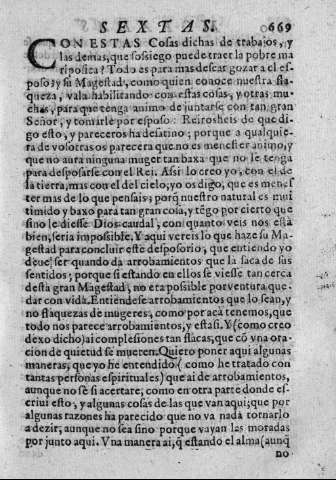 SEXTAS. 669
CON ESTAS Cosas dichas de trabajos, y
las demas, que sossiego puede traer la pobre ma
riposica? Todo es para mas desear gozar al es
poso; y su Magestad, como quien conoce nuestra fla-
queza, vala habilitando con estas cosas, y otras mu-
chas, para que tenga animo de juntarse con tan gran
Señor, y tomarle por esposo. Reirosheis de que di-
go esto, y pareceros ha desatino; porque a qualquie-
ra de vosotras os parecera que no es menester animo, y
que no aura ninguna muger tan baxa que no le tenga
para desposarse con el Rei. Assi lo creo yo, con el de
la tierra, mas con el del cielo, yo os digo, que es menes
ter mas de lo que pensais; porq̃ nuestro natural es mui
timido y baxo para tan gran cosa, y tẽgo por cierto que
sino le diesse Dios caudal, con quanto veis nos està
bien, seria impossible. Y aqui vereis lo que haze su Ma-
gestad para concluir este desposorio, que entiendo yo
deue ser quando da arrobamientos que la saca de sus
sentidos; porque si estando en ellos se viesse tan cerca
desta gran Magestad, no era possible por ventura que-
dar con vida. Entiendese arrobamientos que lo sean, y
no flaquezas de mugeres, como por acà tenemos, que
todo nos parece arrobamientos, y estasi. Y (como creo
dexo dicho) ai complesiones tan flacas, que cõ vna ora
cion de quietud se mueren. Quiero poner aqui algunas
maneras, que yo he entendido (como he tratado con
tantas personas espirituales) que ai de arrobamientos,
aunque no sè si acertare, como en otra parte donde es-
criui esto, y algunas cosas de las que van aqui; que por
algunas razones ha parecido que no va nada tornarlo
a dezir, aunque no sea sino porque vayan las moradas
por junto aqui. Vna manera ai, q̃ estando el alma (aunq̃
no